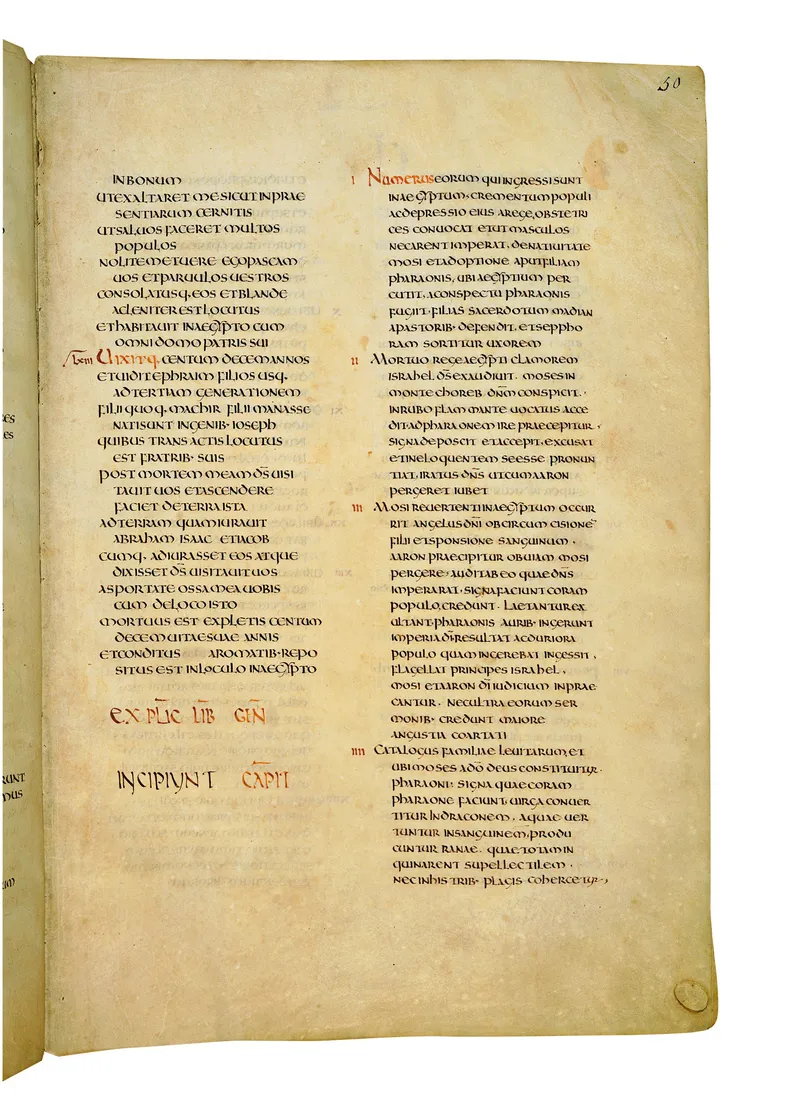 50
IN BONUM
UT EXALTARET ME SICUT IN PRAE
SENTIARUM CERNITIS
UT SALUOS FACERET MULTOS
POPULOS
NOLITE METUERE EGO PASCAM
UOS ET PARUULOS UESTROS
CONSOLATUSQ· EOS ET BLANDE
AC LENITER EST LOCUTUS
ET HABITAUIT IN AEGYPTO CUM
OMNI DOMO PATRIS SUI
UIXITQ· CENTUM DECEM ANNOS
ET UIDIT EPHRAIM FILIOS USQ·
AD TERTIAM GENERATIONEM
FILII QUOQ· MACHIR FILII MANASSE
NATI SUNT IN GENIB· IOSEPH
QUIBUS TRANSACTIS LOCUTUS
EST FRATRIB· SUIS
POST MORTEM MEAM D̅S̅ UISI
TAUIT UOS ET ASCENDERE
FACIET DE TERRA ISTA
AD TERRAM QUAM IURAUIT
ABRAHAM ISAAC ET IACOB
CUMQ· ADIURASSET EOS ATQUE
DIXISSET D̅S̅ UISITAUIT UOS
ASPORTATE OSSA MEA UOBIS
CUM DE LOCO ISTO
MORTUUS EST EXPLETIS CENTUM
DECEM UITAE SUAE ANNIS
ET CONDITUS AROMATIB· REPO
SITUS EST IN LOCULO IN AEGYPTO
EXPLIC LIB GEN̅
INCIPIUNT CAPIT
I NUMERUS EORUM QUI INGRESSI SUNT
IN AEGYPTUM, CREMENTUM POPULI
AC DEPRESSIO EIUS A REGE, OBSTETRI
CES CONUOCAT ET UT MASCULOS
NECARENT IMPERAT, DE NATIUITATE
MOSI ET ADOPTIONE APUT FILIAM
PHARAONIS, UBI AEGYPTIUM PER
CUTIT, A CONSPECTU PHARAONIS
FUGIT· FILIAS SACERDOTUM MADIAN
A PASTORIB· DEFENDIT, ET SEPPHO
RAM SORTITUR UXOREM
II MORTUO REGE AEGYPTI CLAMOREM
ISRAHEL D̅S̅ EXAUDIUIT· MOSES IN
MONTE CHOREB D̅N̅M̅ CONSPICIT·
IN RUBO FLAMMANTE UOCATUS ACCE
DIT· AD PHARAONEM IRE PRAECEPITUR,
SIGNA DEPOSCIT ET ACCEPIT, EXCUSAT
ET INELOQUENTEM SE ESSE PRONUN
TIAT, IRATUS D̅N̅S̅ UT CUM AARON
PERGERET IUBET
III MOSI REUERTENTI IN AEGYPTUM OCCUR
RIT ANGELUS D̅N̅I̅ OB CIRCUMCISIONE̅
FILII ET SPONSIONE SANGUINUM,
AARON PRAECIPITUR OBUIAM MOSI
PERGERE· AUDIT AB EO QUAE D̅N̅S̅
IMPERARAT· SIGNA FACIUNT CORAM
POPULO, CREDUNT· LAETANTUR EX
ULTANT· PHARAONIS AURIB· INGERUNT
IMPERIA D̅I̅· RESULTAT AC DURIORA
POPULO QUAM INGEREBAT INGESSIT,
FLAGELLAT PRINCIPES ISRAHEL,
MOSI ET AARON D̅I̅ IUDICIUM INPRAE
CANTUR· NEC ULTRA EORUM SER
MONIB· CREDUNT MAIORE
ANGUSTIA COARTATI
IIII CATALOGUS FAMILIAE LEUITARUM, ET
UBI MOSES A D̅O̅ DEUS CONSTITUITUR
PHARAONI· SIGNA QUAE CORAM
PHARAONE FACIUNT, UIRGA CONUER
TITUR IN DRACONEM, AQUAE UER
TUNTUR IN SANGUINEM, PRODU
CUNTUR RANAE· QUAE TOTAM IN
QUINARENT SUPELLECTILEM·
NEC IN HIS TRIB· PLAGIS COHERCETUR